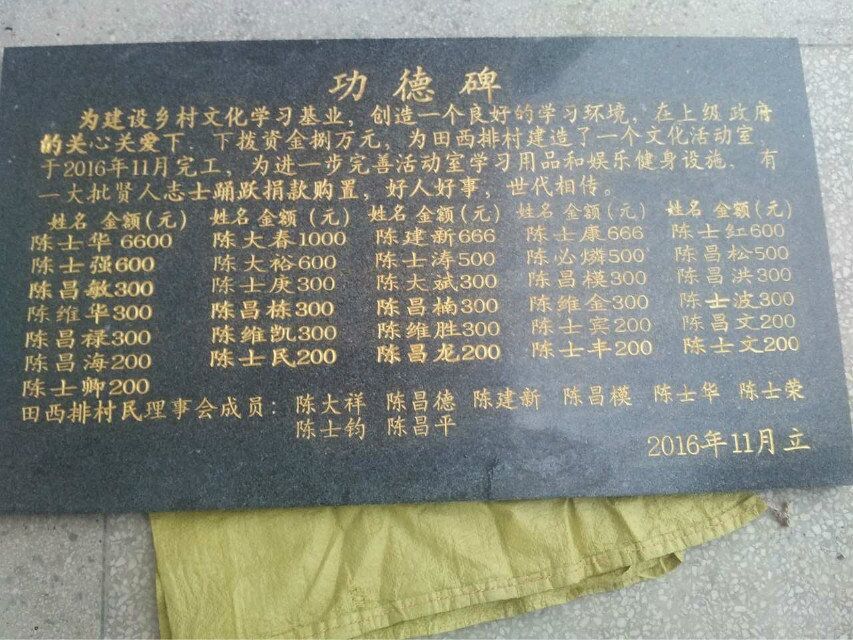 功德碑
为建设乡村文化学习基业，创造一个良好的学习环境，在上级政府
的关心关爱下．下拨资金捌万元，为田西排村建造了一个文化活动室
于2016年11月完工，为进一步完善活动室学习用品和娱乐健身设施．有
一大批贤人志士踊跃捐款购置，好人好事，世代相传。
姓名 金额(元) 姓名 金额(元) 姓名 金额(元) 姓名 金额(元) 姓名 金额(元)
陈士华 6600 陈大春1000 陈建新666 陈士康666 陈士红600
陈士强600 陈大裕600 陈士涛500 陈必燐500 陈昌松500
陈昌敏300 陈士庚300 陈大斌300 陈昌模300 陈昌洪300
陈维华300 陈昌栋300 陈昌楠300 陈维金300 陈士波300
陈昌禄300 陈维凯300 陈维胜300 陈士宾200 陈昌文200
陈昌海200 陈士民200 陈昌龙200 陈士丰200 陈士文200
陈士卿200
田西排村民理事会成员：陈大祥 陈昌德 陈建新 陈昌模 陈士华 陈士荣
陈士钧 陈昌平
2016年11月立